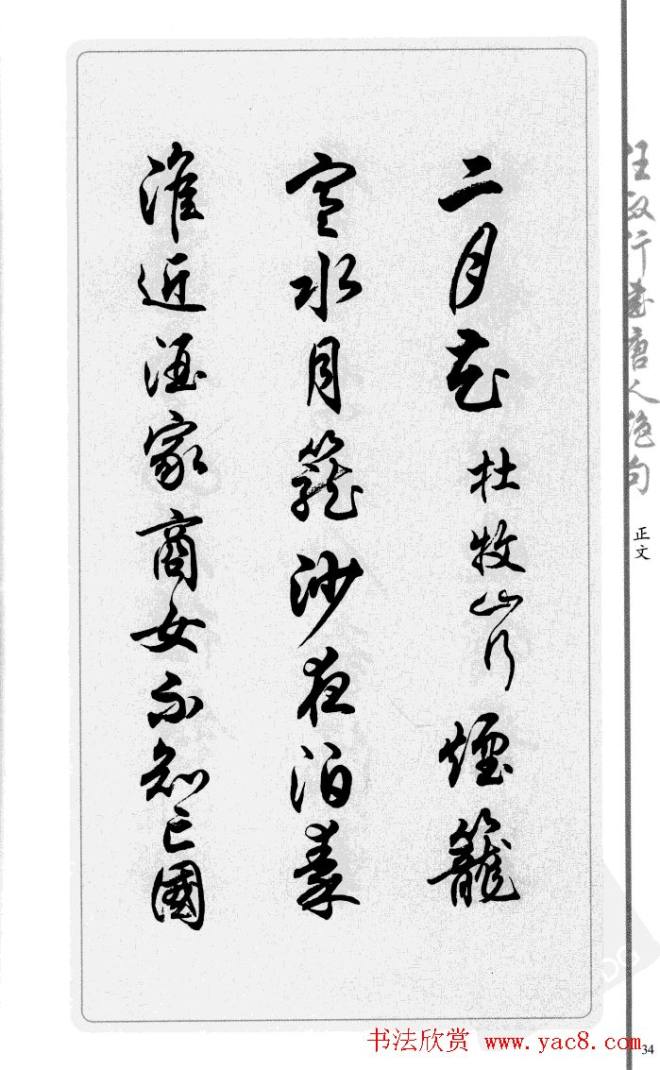 二月花 杜牧山行 煙籠
寒水月籠沙夜泊秦
淮近酒家商女不知亡國
任政行書唐人絕句
正文
书法欣赏 www.yac8.com
34